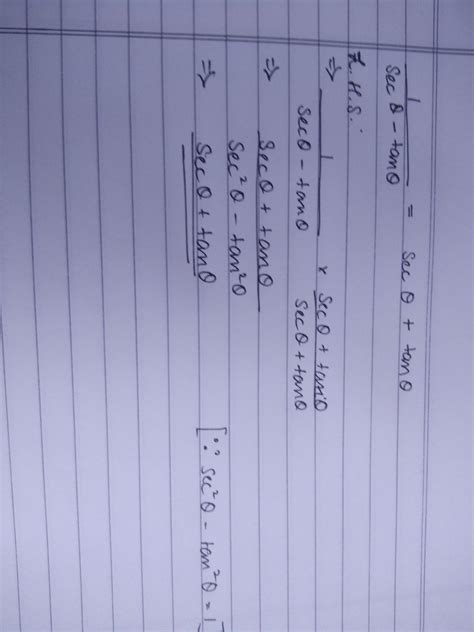 1 / secθ - tanθ = sec θ + tanθ
L.H.S.:
⇒ 1 / secθ - tanθ × secθ + tanθ / secθ + tanθ
⇒ secθ + tanθ / sec²θ - tan²θ
⇒ secθ + tanθ [∵ sec²θ - tan²θ = 1]